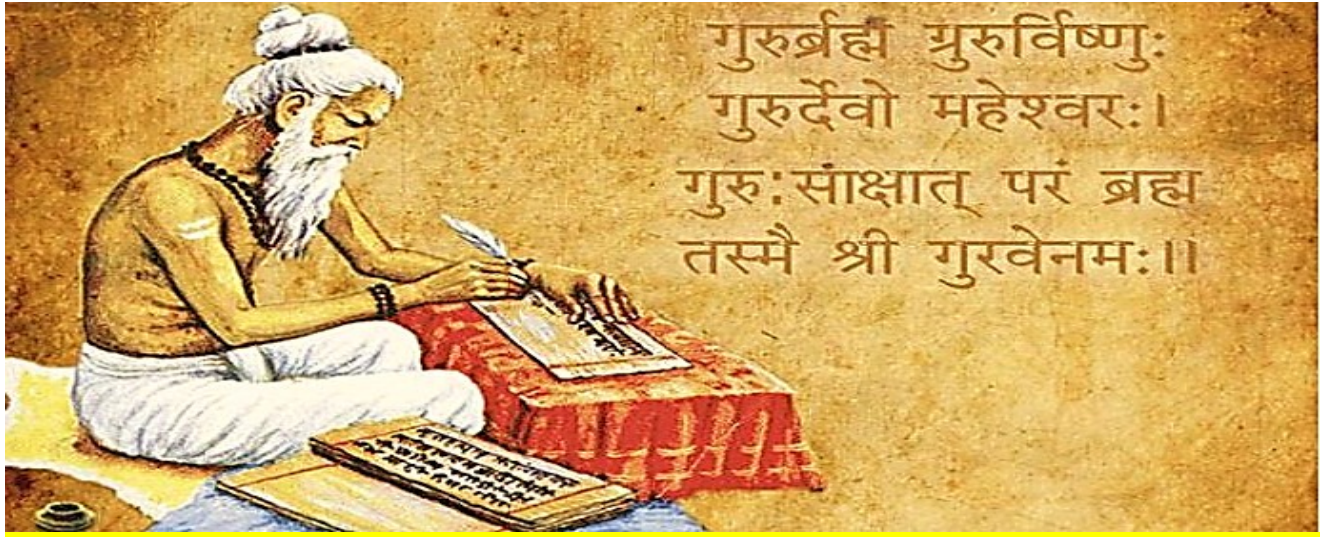 गुरुर्ब्रह्म ग्रुरुर्विष्णुः
गुरुर्देवो महेश्वरः।
गुरु:सांक्षात् परं ब्रह्म
तस्मै श्री गुरवेनमः।।